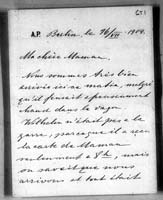 A.P. Berlin, le 26/VII 1909.
Ma chère Maman,
Nous sommes très bien
arrivés ici ce matin, malgré
qu'il faisait
chaud dans le wagon
Wilhelm n'était pas à la
gare, parce que il a reçu
la carte de Maman
seulement à 8h, mais
on savait que nous
arrivons et tout était